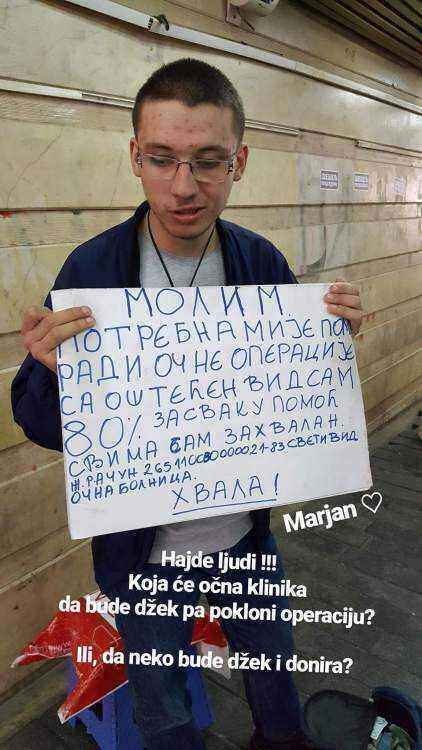 МОЛИМ.
ПОТРЕБНА МИ ЈЕ ПО
РАДИ ОЧНЕ ОПЕРАЦИЈЕ
СА ОШТЕЋЕН ВИД САМ
80% ЗА СВАКУ ПОМОЋ
СВИМА САМ ЗАХВАЛАН.
Ж.РАЧУН СВЕТИ ВИД
ОЧНА БОЛНИЦА.
ХВАЛА!
Marjan ♡
Hajde ljudi !!!
Koja će očna klinika
da bude džek pa pokloni operaciju?
Ili, da neko bude džek i donira?